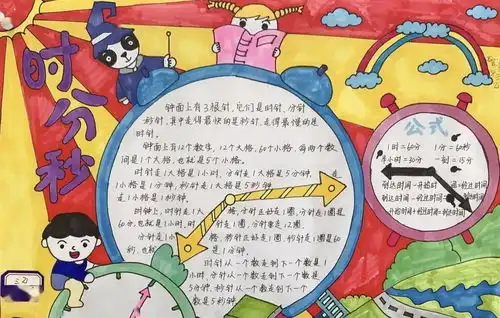 时分秒
钟面上有3根针,它们是时针、分针
秒针,其中走得最快的是秒针,走得最慢的是
时针。
钟面上有12个数字,12个大格,60个小格,每两个数
间是1个大格,也就是5个小格。
时针走1大格是1小时,分针走1大格是5分钟,走
1小格是1分钟,秒针走1大格是5秒钟
走1小格是1秒钟。
时钟上,时针走1大格,分针正好走1圈,分针走1圈是
60分,也就是1小时,时针走1圈,分针要走12圈。
分针走1小格,秒针正好走1圈,秒针走1圈是60
是1分钟。
时针从一个数走到下一个数是1
小时,分针从一个数走到下一个数是
5分钟,秒针从一个数走到下一个
数是5秒钟
公式
1时=60分 1分=60秒
半小时=30分 一刻=15分